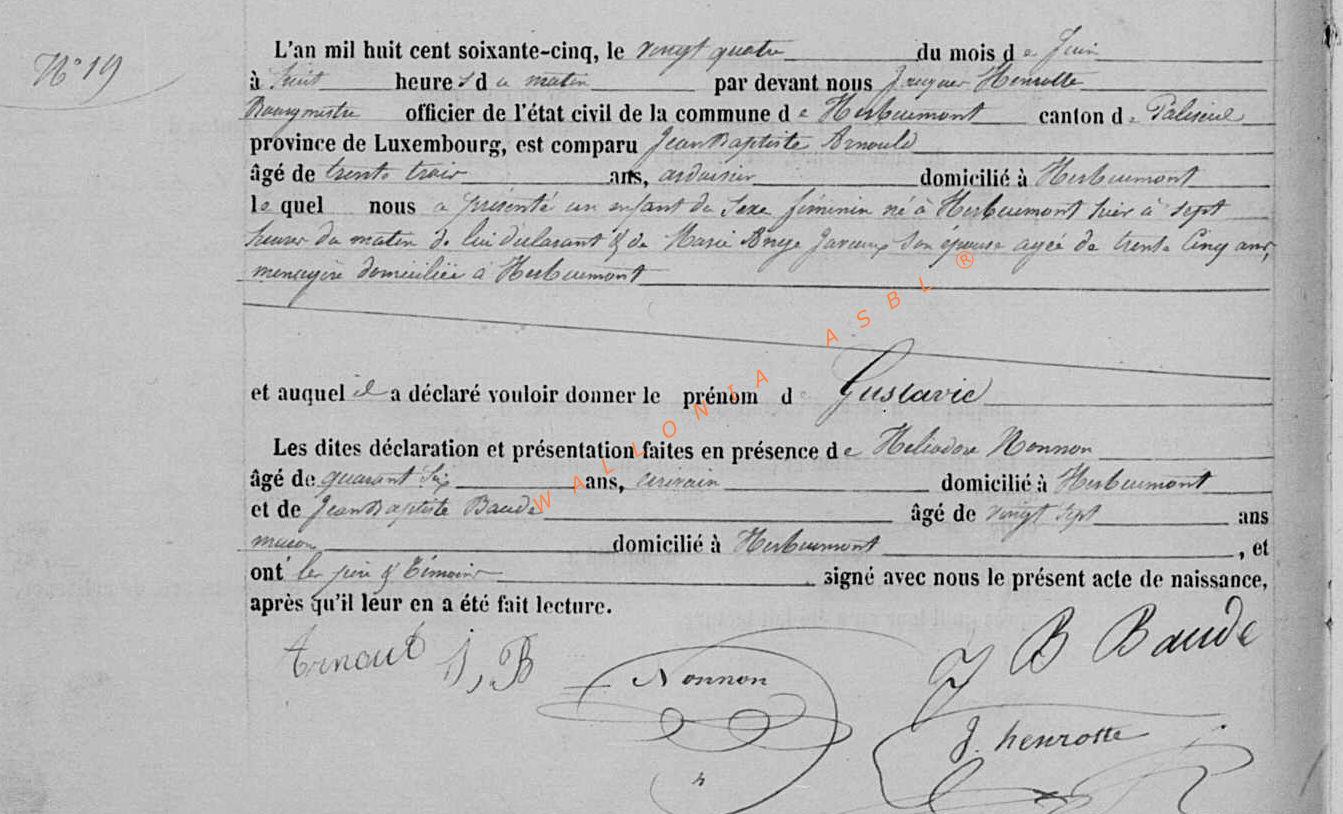 N° 19
L'an mil huit cent soixante-cinq, le vingt quatre du mois de Juin
à huit heures du matin par devant nous Jacques Henrotte
Bourgmestre officier de l'état civil de la commune de Herbeumont canton de Paliseul
province de Luxembourg, est comparu Jean Baptiste Arnould
âgé de trente trois ans, ardoisier domicilié à Herbeumont
le quel nous a présenté un enfant du sexe féminin né à Herbeumont hier à sept
heures du matin de lui déclarant & de Marie Ange son épouse agée de trente cinq ans,
menagère domiciliée à Herbeumont
et auquel il a déclaré vouloir donner le prénom de Gustavie
Les dites déclaration et présentation faites en présence de Heliodore Nonnon
âgé de quarant six ans, écrivain domicilié à Herbeumont
et de Jean Baptiste Baude âgé de vingt sept ans
macon domicilié à Herbeumont, et
ont les père & témoins signé avec nous le présent acte de naissance,
après qu'il leur en a été fait lecture.
Arnout J, B
Nonnon
J B Baude
J. henrotte
WALLONIA ASBL ®